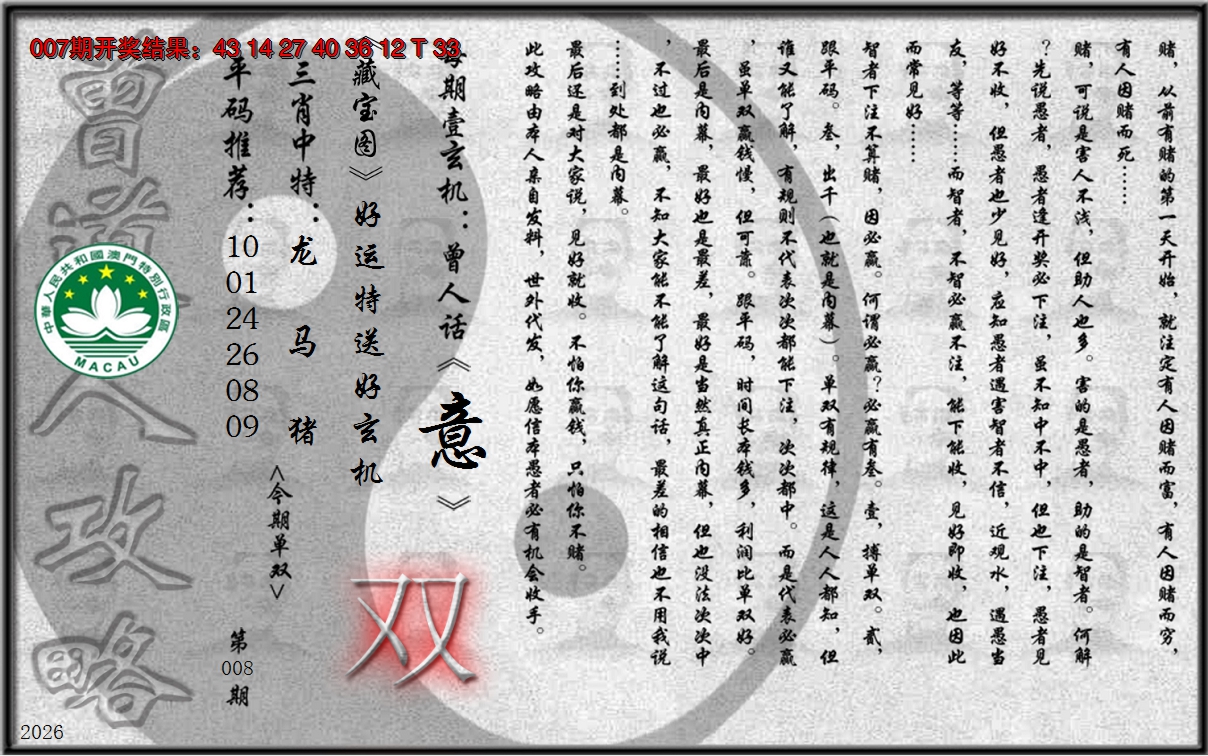 007期开奖结果：43 14 27 40 36 12 T 33
赌，从前有赌的第一天开始，就注定有人因赌而富，有人因赌而穷，
有人因赌而死……
赌，可说是害人不浅，但助人也多。害的是愚者，助的是智者。何解
？先说愚者，愚者逢开奖必下注，虽不知中不中，但也下注，愚者见
好不收，但愚者也少见好，应知愚者遇害智者不信，近观水，遇愚当
友，等等……而智者，不智必赢不注，能下能收，见好即收，也因此
而常见好……
智者下注不算赌，因必赢。何谓必赢？必赢有叁。壹，搏单双。贰，
跟平码。叁，出千（也就是内幕）。单双有规律，这是人人都知，但
谁又能了解，有规则不代表次次都能下注，次次都中。而是代表必赢
，虽单双赢钱慢，但可靠。跟平码，时间长本钱多，利润比单双好。
最后是内幕，最好也是最差，最好是当然真正内幕，但也没法次次中
，不过也必赢，不知大家能不能了解这句话，最差的相信也不用我说
……到处都是内幕。
最后还是对大家说，见好就收。不怕你赢钱，只怕你不赌。
此攻略由本人亲自发料，世外代发，如愿信本愚者必有机会收手。
每期壹玄机：曾人话《意》
《藏宝图》好运特送好玄机
双
三肖中特：龙 马 猪
<今期单双>
平码推荐：10 01 24 26 08 09
第008期
曾道人攻略
中華人民共和國澳門特別行政區
MACAU
2026